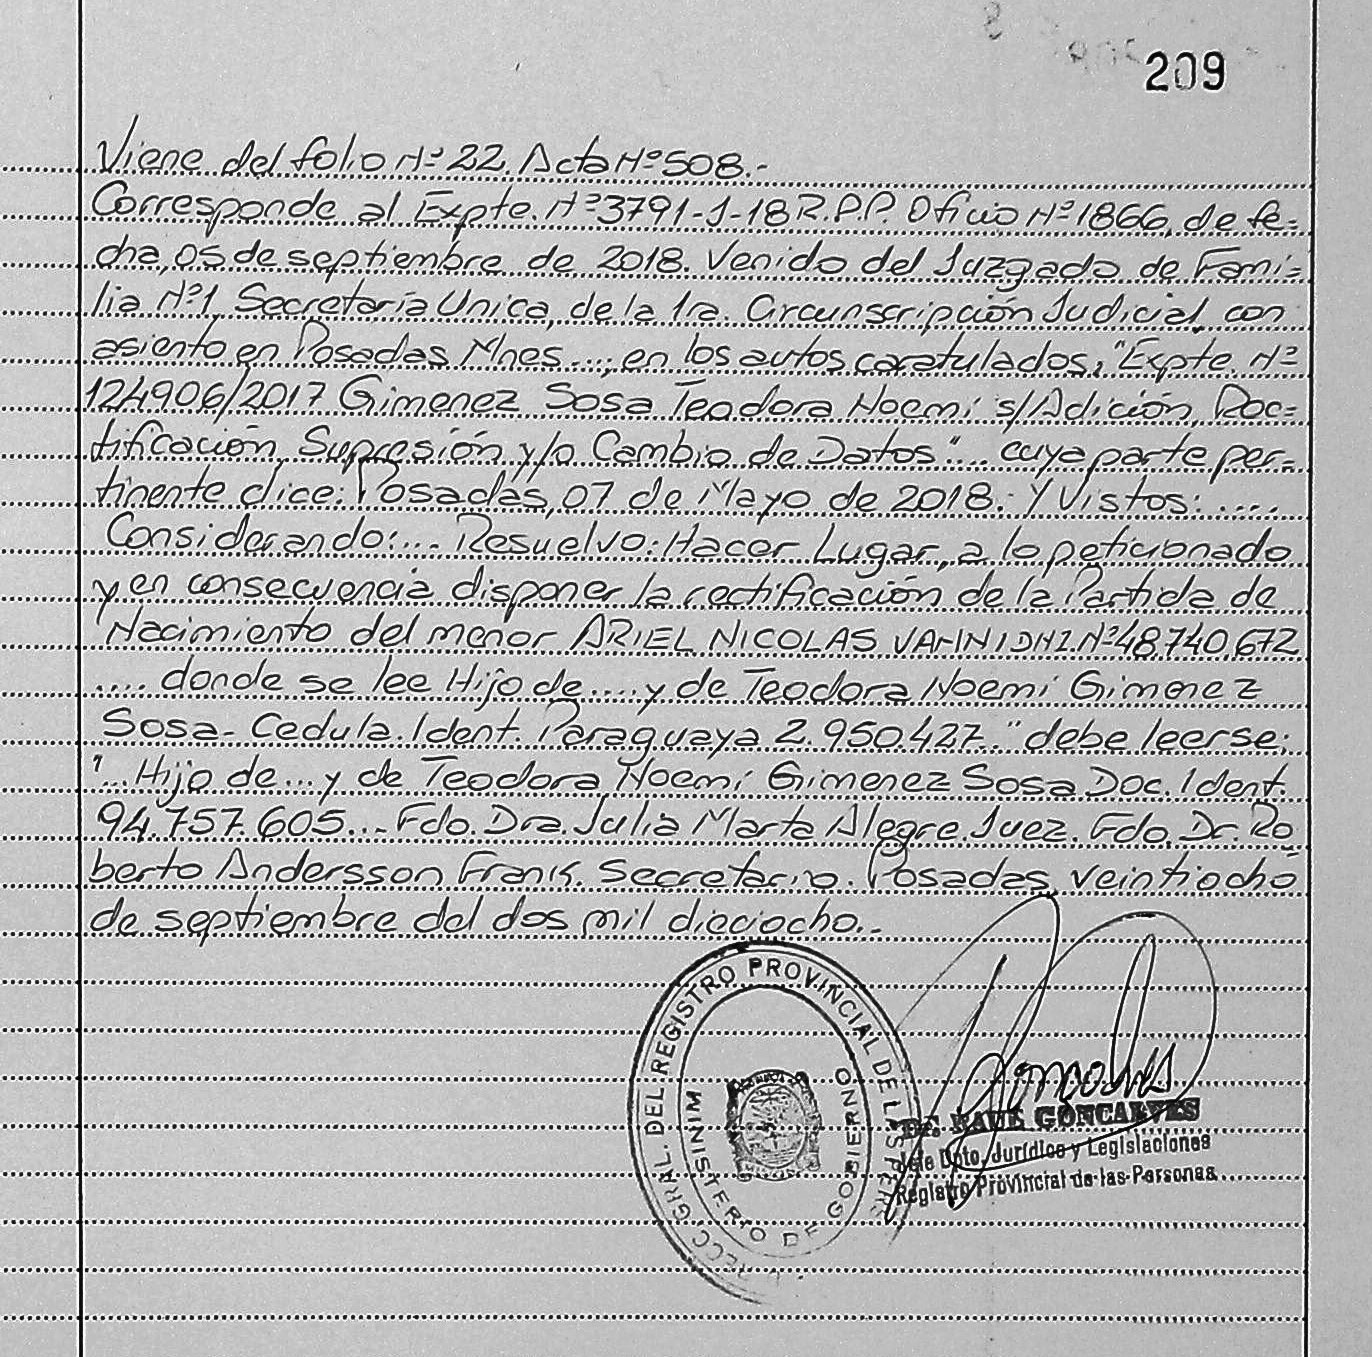 209
Viene del folio Nº 22. Acta Nº 508.-
Corresponde al Expte. Nº 3791-J-18 R.P.P. Oficio Nº 1866, de fe-
cha, 05 de septiembre de 2018. Venido del Juzgado de Fami-
lia Nº1, Secretaría Unica, de la 1ra. Circunscripción Judicial, con
asiento en Posadas Mnes...., en los autos caratulados, "Expte. Nº
124906/2017 Gimenez Sosa Teodora Noemí s/Adición, Rec-
tificación, Supresión y/o Cambio de Datos".... cuya parte per-
tinente dice: Posadas, 07 de Mayo de 2018.: Y Vistos: ....
Considerando:... Resuelvo: Hacer Lugar, a lo peticionado
y en consecuencia disponer la rectificación de la Partida de
Nacimiento del menor ARIEL NICOLAS VANNI DNI. Nº 48.740.672
.... donde se lee Hijo de.... y de Teodora Noemí Gimenez
Sosa- Cedula. Ident. Paraguaya 2.950.427.." debe leerse;
"... Hijo de... y de Teodora Noemí Gimenez Sosa Doc. Ident.
94.757.605... Fdo. Dra. Julia Marta Alegre. Juez. Fdo. Dr. Ro-
berto Andersson Frank. Secretario. Posadas, veintiocho
de septiembre del dos mil dieciocho.-
DIRECC GRAL. DEL REGISTRO PROVINCIAL DE LAS PERS
MINISTERIO DE GOBIERNO
Dr. RAUL GONCALVES
Jefe Dpto. Jurídico y Legislaciones
Registro Provincial de las Personas